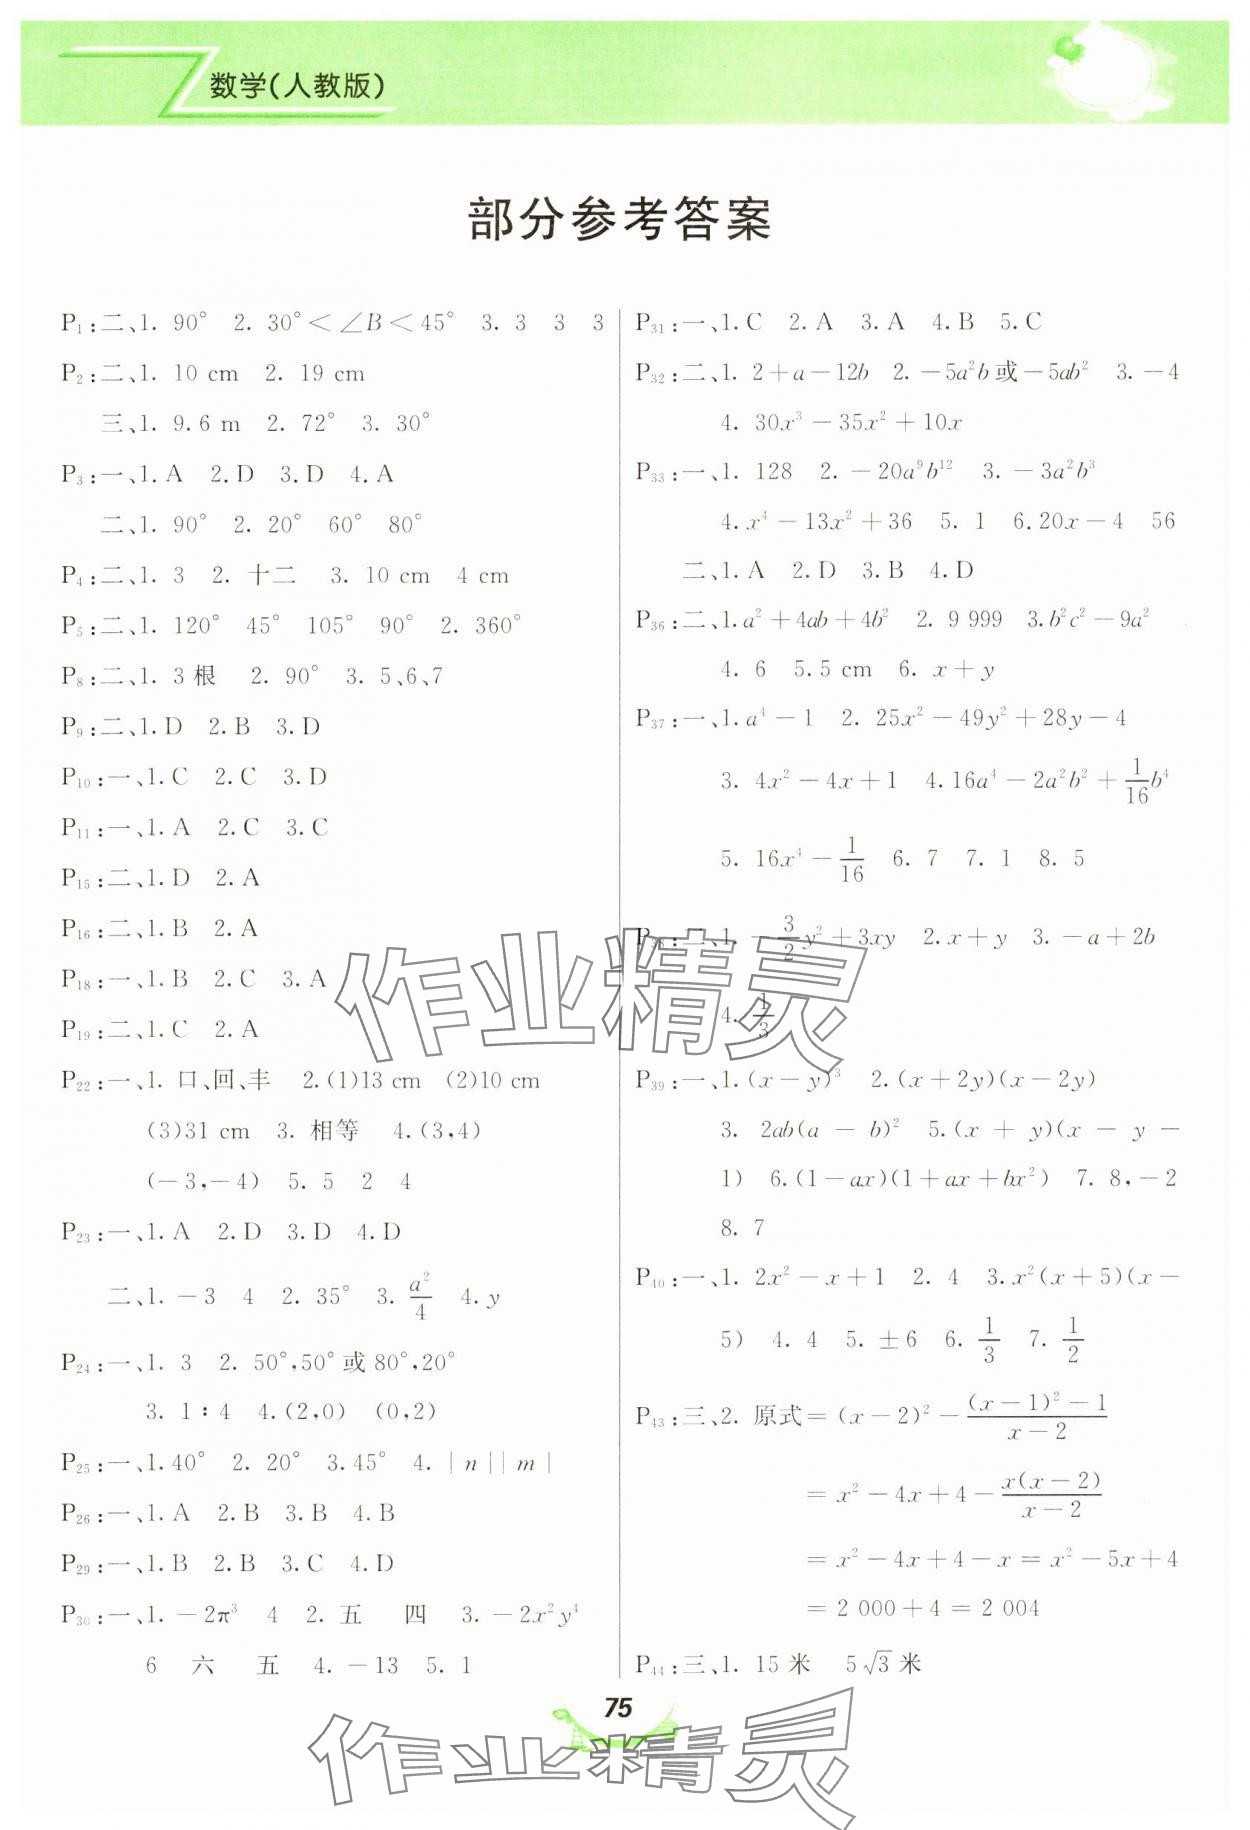 数学(人教版)
部分参考答案
P₁:二、1. 90° 2. 30°<∠B<45° 3. 3 3 3
P₂:二、1. 10 cm 2. 19 cm
三、1. 9.6 m 2. 72° 3. 30°
P₃:一、1. A 2. D 3. D 4. A
二、1. 90° 2. 20° 60° 80°
P₄:二、1. 3 2. 十二 3. 10 cm 4 cm
P₅:二、1. 120° 45° 105° 90° 2. 360°
P₈:二、1. 3根 2. 90° 3. 5、6、7
P₉:二、1. D 2. B 3. D
P₁₀:一、1. C 2. C 3. D
P₁₁:一、1. A 2. C 3. C
P₁₅:二、1. D 2. A
P₁₆:二、1. B 2. A
P₁₈:一、1. B 2. C 3. A
P₁₉:二、1. C 2. A
P₂₂:一、1. 口、回、丰 2. (1)13 cm (2)10 cm
(3)31 cm 3. 相等 4. (3,4)
(−3,−4) 5. 5 2 4
P₂₃:一、1. A 2. D 3. D 4. D
二、1. −3 4 2. 35° 3. a²/4 4. y
P₂₄:一、1. 3 2. 50°,50°或80°,20°
3. 1∶4 4. (2,0) (0,2)
P₂₅:一、1. 40° 2. 20° 3. 45° 4. |n||m|
P₂₆:一、1. A 2. B 3. B 4. B
P₂₉:一、1. B 2. B 3. C 4. D
P₃₀:一、1. −2π³ 4 2. 五 四 3. −2x²y⁴
6 六 五 4. −13 5. 1
P₃₁:一、1. C 2. A 3. A 4. B 5. C
P₃₂:二、1. 2+a−12b 2. −5a²b或−5ab² 3. −4
4. 30x³−35x²+10x
P₃₃:一、1. 128 2. −20a⁹b¹² 3. −3a²b³
4. x⁴−13x²+36 5. 1 6. 20x−4 56
二、1. A 2. D 3. B 4. D
P₃₆:二、1. a²+4ab+4b² 2. 9 999 3. b²c²−9a²
4. 6 5. 5 cm 6. x+y
P₃₇:一、1. a⁴−1 2. 25x²−49y²+28y−4
3. 4x²−4x+1 4. 16a⁴−2a²b²+1/16b⁴
5. 16x⁴−1/16 6. 7 7. 1 8. 5
P₃₈:二、1. −3/2y²+3xy 2. x+y 3. −a+2b
4. 1/3
P₃₉:一、1. (x−y)³ 2. (x+2y)(x−2y)
3. 2ab(a−b)² 5. (x+y)(x−y−
1) 6. (1−ax)(1+ax+bx²) 7. 8,−2
8. 7
P₄₀:一、1. 2x²−x+1 2. 4 3. x²(x+5)(x−
5) 4. 4 5. ±6 6. 1/3 7. 1/2
P₄₃:三、2. 原式=(x−2)²−((x−1)²−1)/(x−2)
=x²−4x+4−x(x−2)/(x−2)
=x²−4x+4−x=x²−5x+4
=2 000+4=2 004
P₄₄:三、1. 15米 5√3米
75
作业精灵
作业精灵